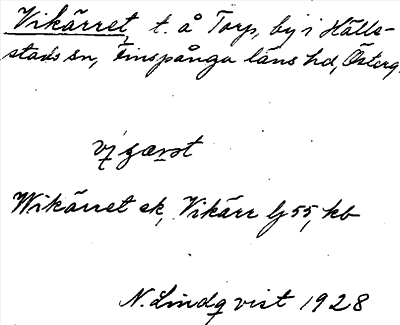 Vikärret, t. å Torp, by i Hälle-
stads sn, Finspånga läns hd, Österg.
Wikärret ek, Vikärr Lj 55, kb
N. Lindqvist 1928